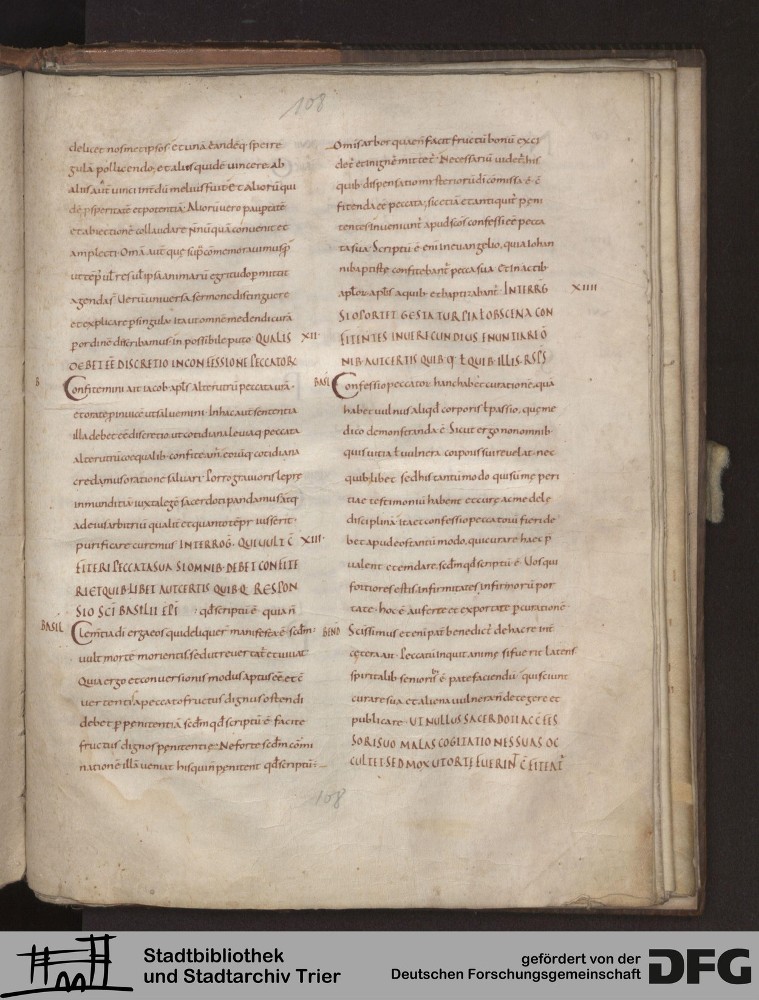 108
delicet nosmetipsos. et una eandeq; spe re
gula pollicendo; et alius quide uincere. ab
de psperitate et potentia. Aliorū uero paupertate
et abiectione collaudare n̄nūquā conuenit et
agendas. Uerū uniuersa sermone distinguere
et explicare p singula. ita ut omnē medendi curā
por dinē describamus. inpossibile puto. QUALIS XII
DEBET EĒ DISCRETIO IN CONFESSIONE PECCATORŪ
B Confitemini ait iacob. apls alterutrū peccata urā.
et orate p inuicē ut saluemini. In hac aut sententia
illa debet eē discretio. ut cotidiana leuiaq; peccata
alterutrū coequalib. confiteam̄. eoruq; cotidiana
credamus oratione saluari. Porro grauioris leprę
inmunditiā iuxta legē sacerdoti pandamus. atq;
ad eius arbitriū qualit̄ et quanto tēpr iusserit.
purificare curemus INTERROG̅. QUI UULT C̅ XIII.
FITERI PECCATA SUA. SI OMNIB. DEBET CONFITE
RI ET QUIB. LIBET AUT CERTIS QUIBQ. RESPON
SIO SC̅I BASILII EP̅I qd scriptū ē. quia n̄
BASIL Clem̄tia di erga eos qui deliquer̄ manifesta ē. scdm.
uult mortē morientis. sed ut reuertat̄ et uiuat
Quia ergo et conuersionis modus aptus eē. et ē
uertenti a peccato fructus dignus ostendi
debet p penitentiā scdm qd scriptū ē. facite
fructus dignos penitentię. Ne forte scdm comi
natione illā ueniat his qui n̄ penitent qd scriptū:
Omis arbor quae n̄ facit fructū bonū exci
det̄ et in igne mittet̄. Necessariū uidet̄. his
quib. dispensatio misteriorū di comissa ē. c̄
fitenda eē peccata; sic etiā et antiqui p̄ peni
tentes inueniunt̄ apud scos confessi eē pecca
ta sua. Scriptū ē. eni in euangelio, quia Iohan
ni baptiste confitebant̄ pecca sua. Et in actib.
aplor. aplis a quib. et baptizabant̄. INTERRG XIIII
SI OPORTET GESTA TURPIA ł OBSCENA CON
FITENTES INUERECUNDIUS ENUNTIARE Ō
NIB. AUT CERTIS QUIB. q̄. ł QUIB. ILLIS. RSPS
BASIL Confessio peccatorū hanc habet curatione. quā
habet uulnus aliqd corporis ł passio, quę me
dico demonstranda ē. Sicut ergo non omnib.
quis uitia ł uulnera corporis sui reuelat. nec
quib. libet sed his tantūmodo qui sūme peri
tiae testimoniū habent et curę ac medele
disciplinā. ita et confessio peccatorū fieri de
bet apud eos tantū modo, qui curare haec p
ualent et emdare. scdm qd scriptū ē. Uos qui
fortiores estis infirmitates infirmorū por
tate. hoc ē auferte et exportate p curatione.
BEND Scissimus etenī pat̄ benedict̄ de hac re int̄
cętera ait. Peccatū inquit animę si fuerit latens
spiritalib. seniorib. ē patefaciendū. qui sciunt
curare sua et aliena uulnera n̄ detegere et
publicare. UT NULLUS SACERDOTI ACCES
SORI SUO MALAS COGITATIONES SUAS OC
CULTET. SED MOX UT ORTE FUERIN̄ C̅FITEAT̄
108
Stadtbibliothek
und Stadtarchiv Trier
gefördert von der
Deutschen Forschungsgemeinschaft
DFG